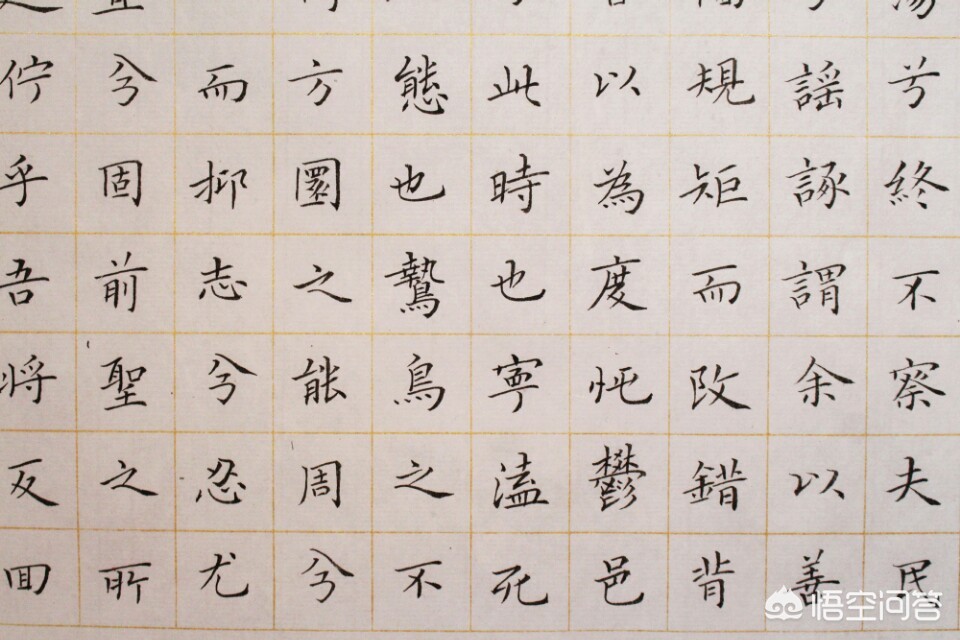 兮終不察夫民
謠諑謂余以善
規矩而改錯背
以為度忳鬱邑
此時也寧溘死
態也鷙鳥之不
方圜之能周兮
而抑志兮忍尤
兮固前聖之所
佇乎吾将反回
悟空问答